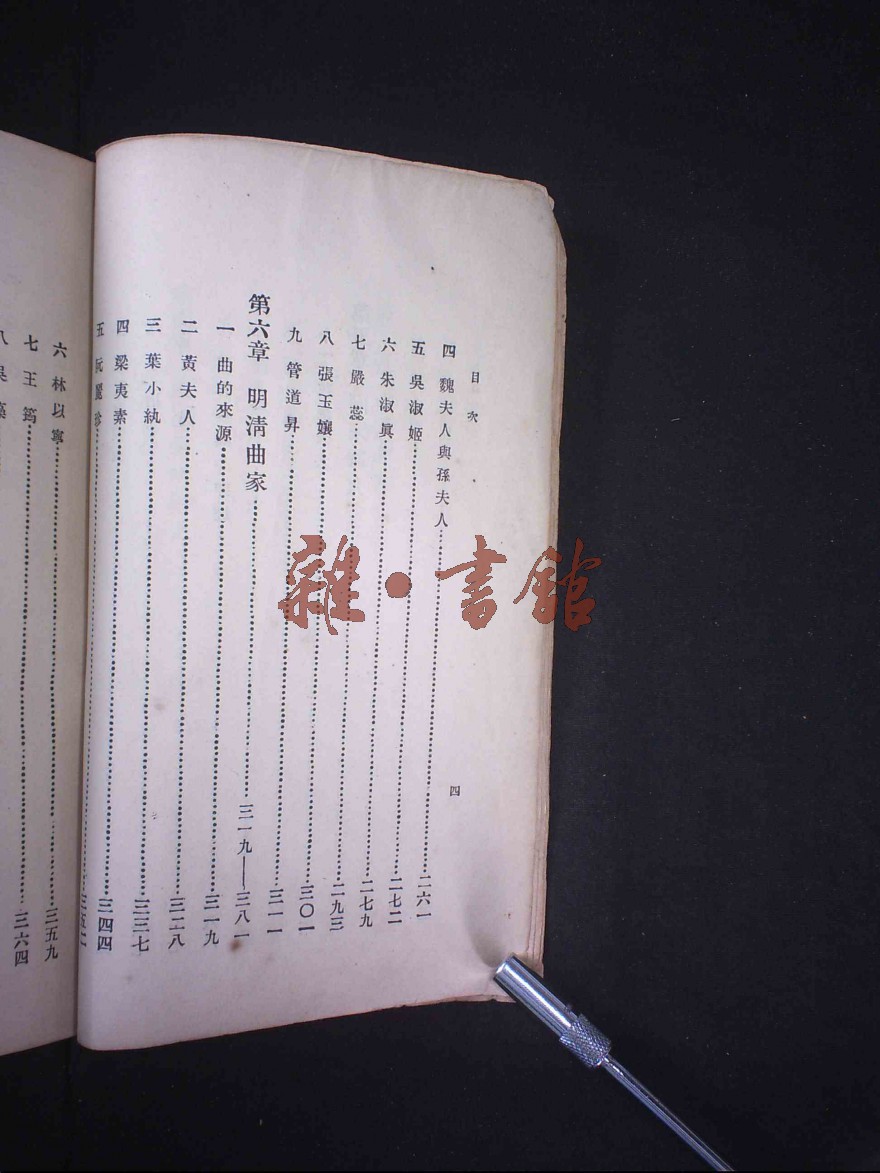 目次
四 魏夫人與孫夫人 二六一
五 吳淑姬 二七二
六 朱淑真 二七九
七 嚴蕊 二九三
八 張玉孃 三〇一
九 管道昇 三一一
第六章 明淸曲家 三一九——三八一
一 曲的來源 三一九
二 黃夫人 三二八
三 葉小紈 三三七
四 梁夷素 三四四
五 阮麗珍 三五二
六 林以寧 三五九
七 王筠 三六四
八 吳藻
四
雜·書館